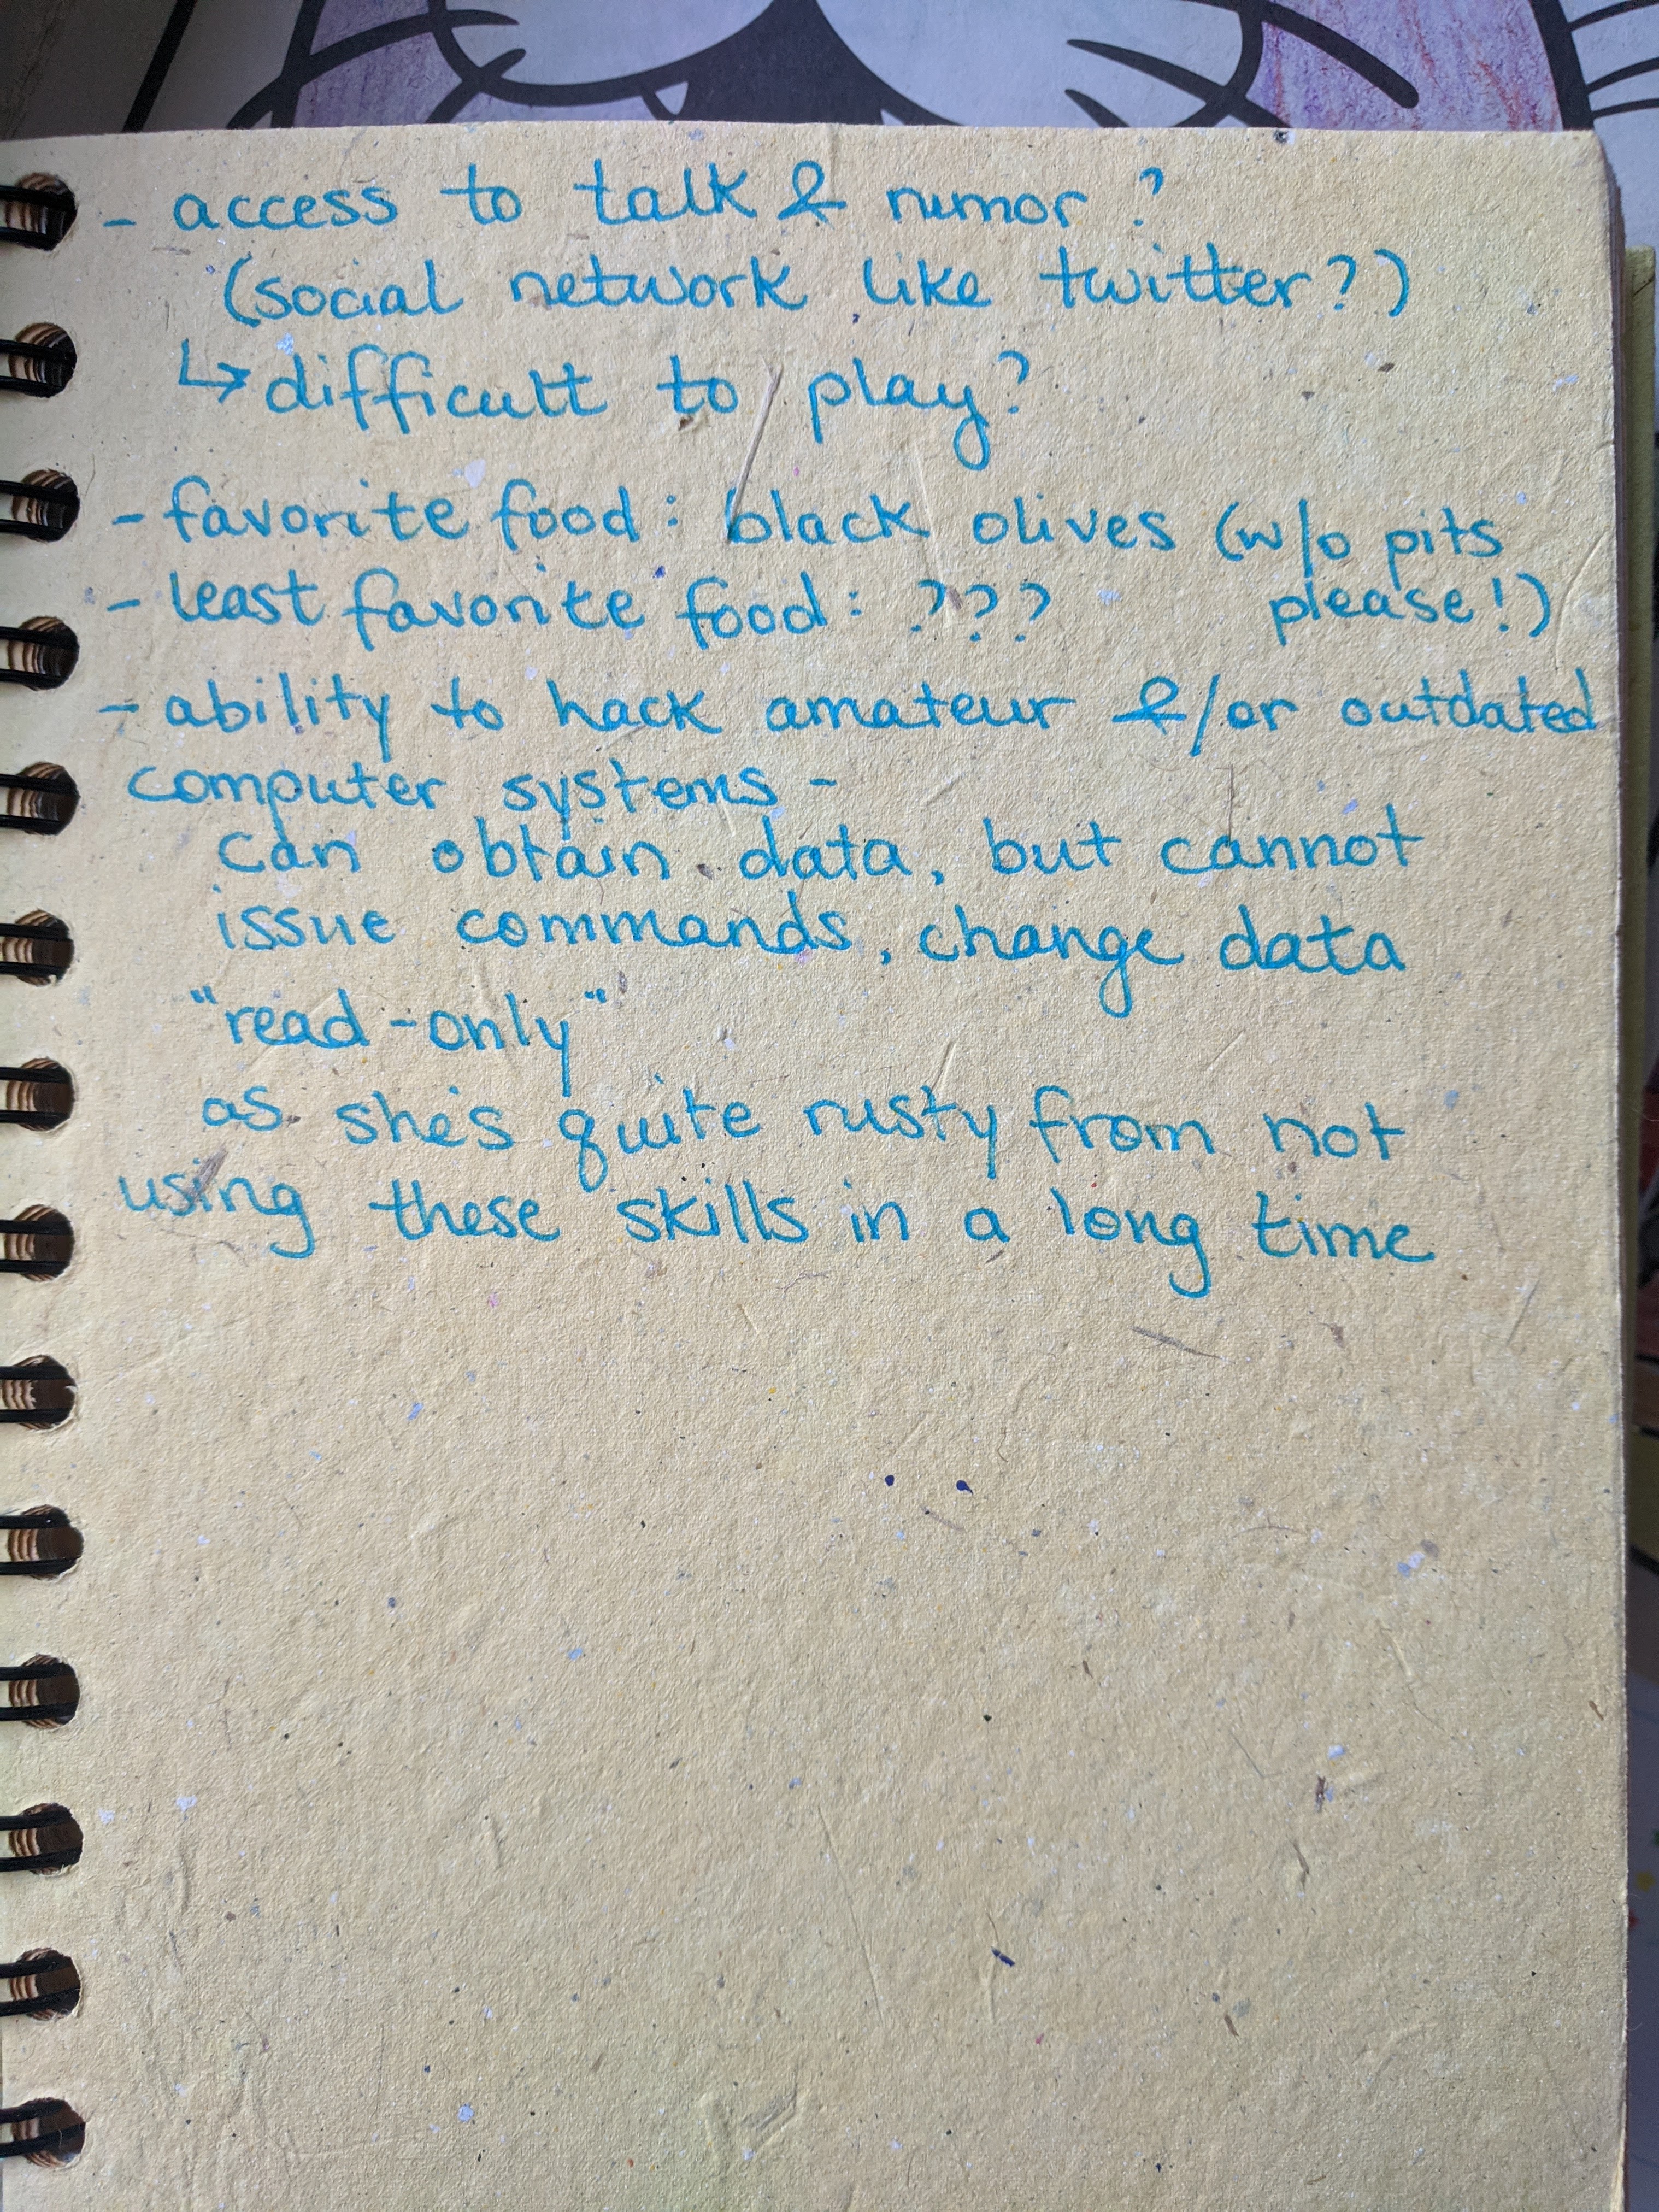 - access to talk & rumor?
(social network like twitter?)
↳ difficult to play?
- favorite food: black olives (w/o pits
- least favorite food: ??? please!)
- ability to hack amateur &/or outdated
computer systems -
can obtain data, but cannot
issue commands, change data
"read-only"
as she's quite rusty from not
using these skills in a long time